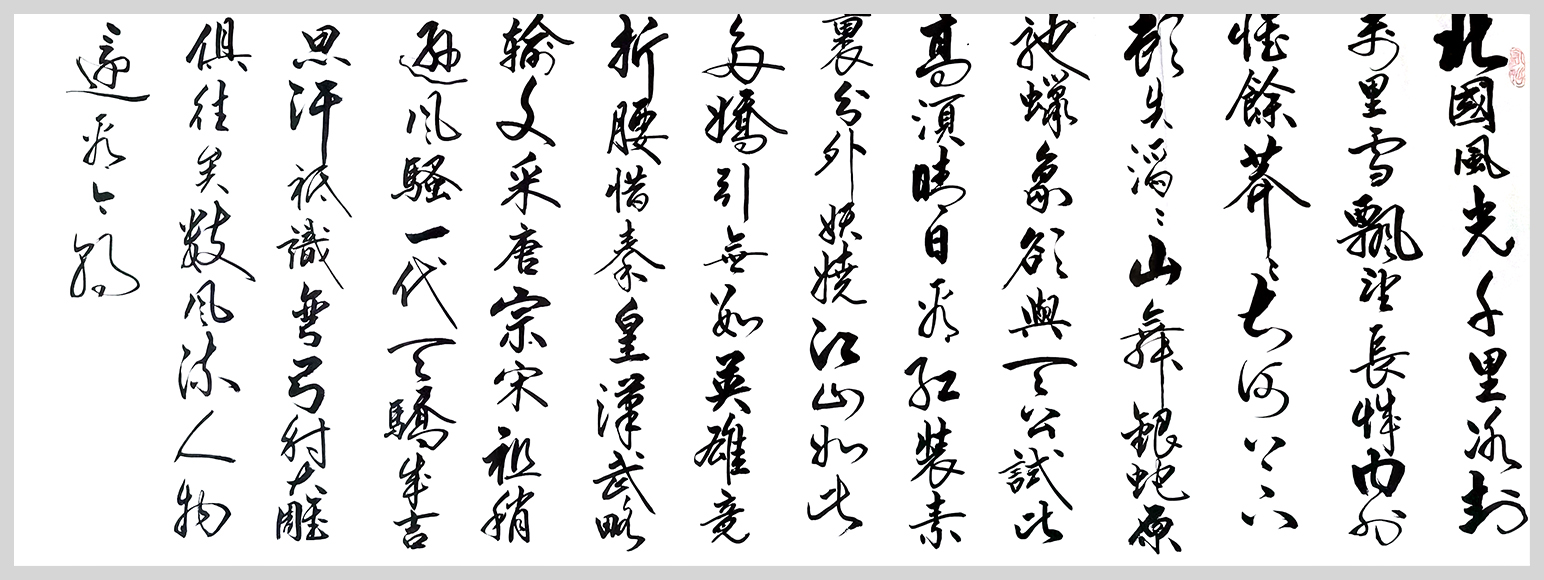 北國風光千里冰封
萬里雪飄望長城内外
惟餘莽〻大河上下
頓失滔〻山舞銀蛇原
馳蠟象欲與天公試比
高須晴日看紅裝素
裹分外妖嬈江山如此
多嬌引無數英雄競
折腰惜秦皇漢武略
輸文采唐宗宋祖稍
遜风騷一代天驕成吉
思汗祇識彎弓射大雕
俱往矣數风流人物
還看今朝